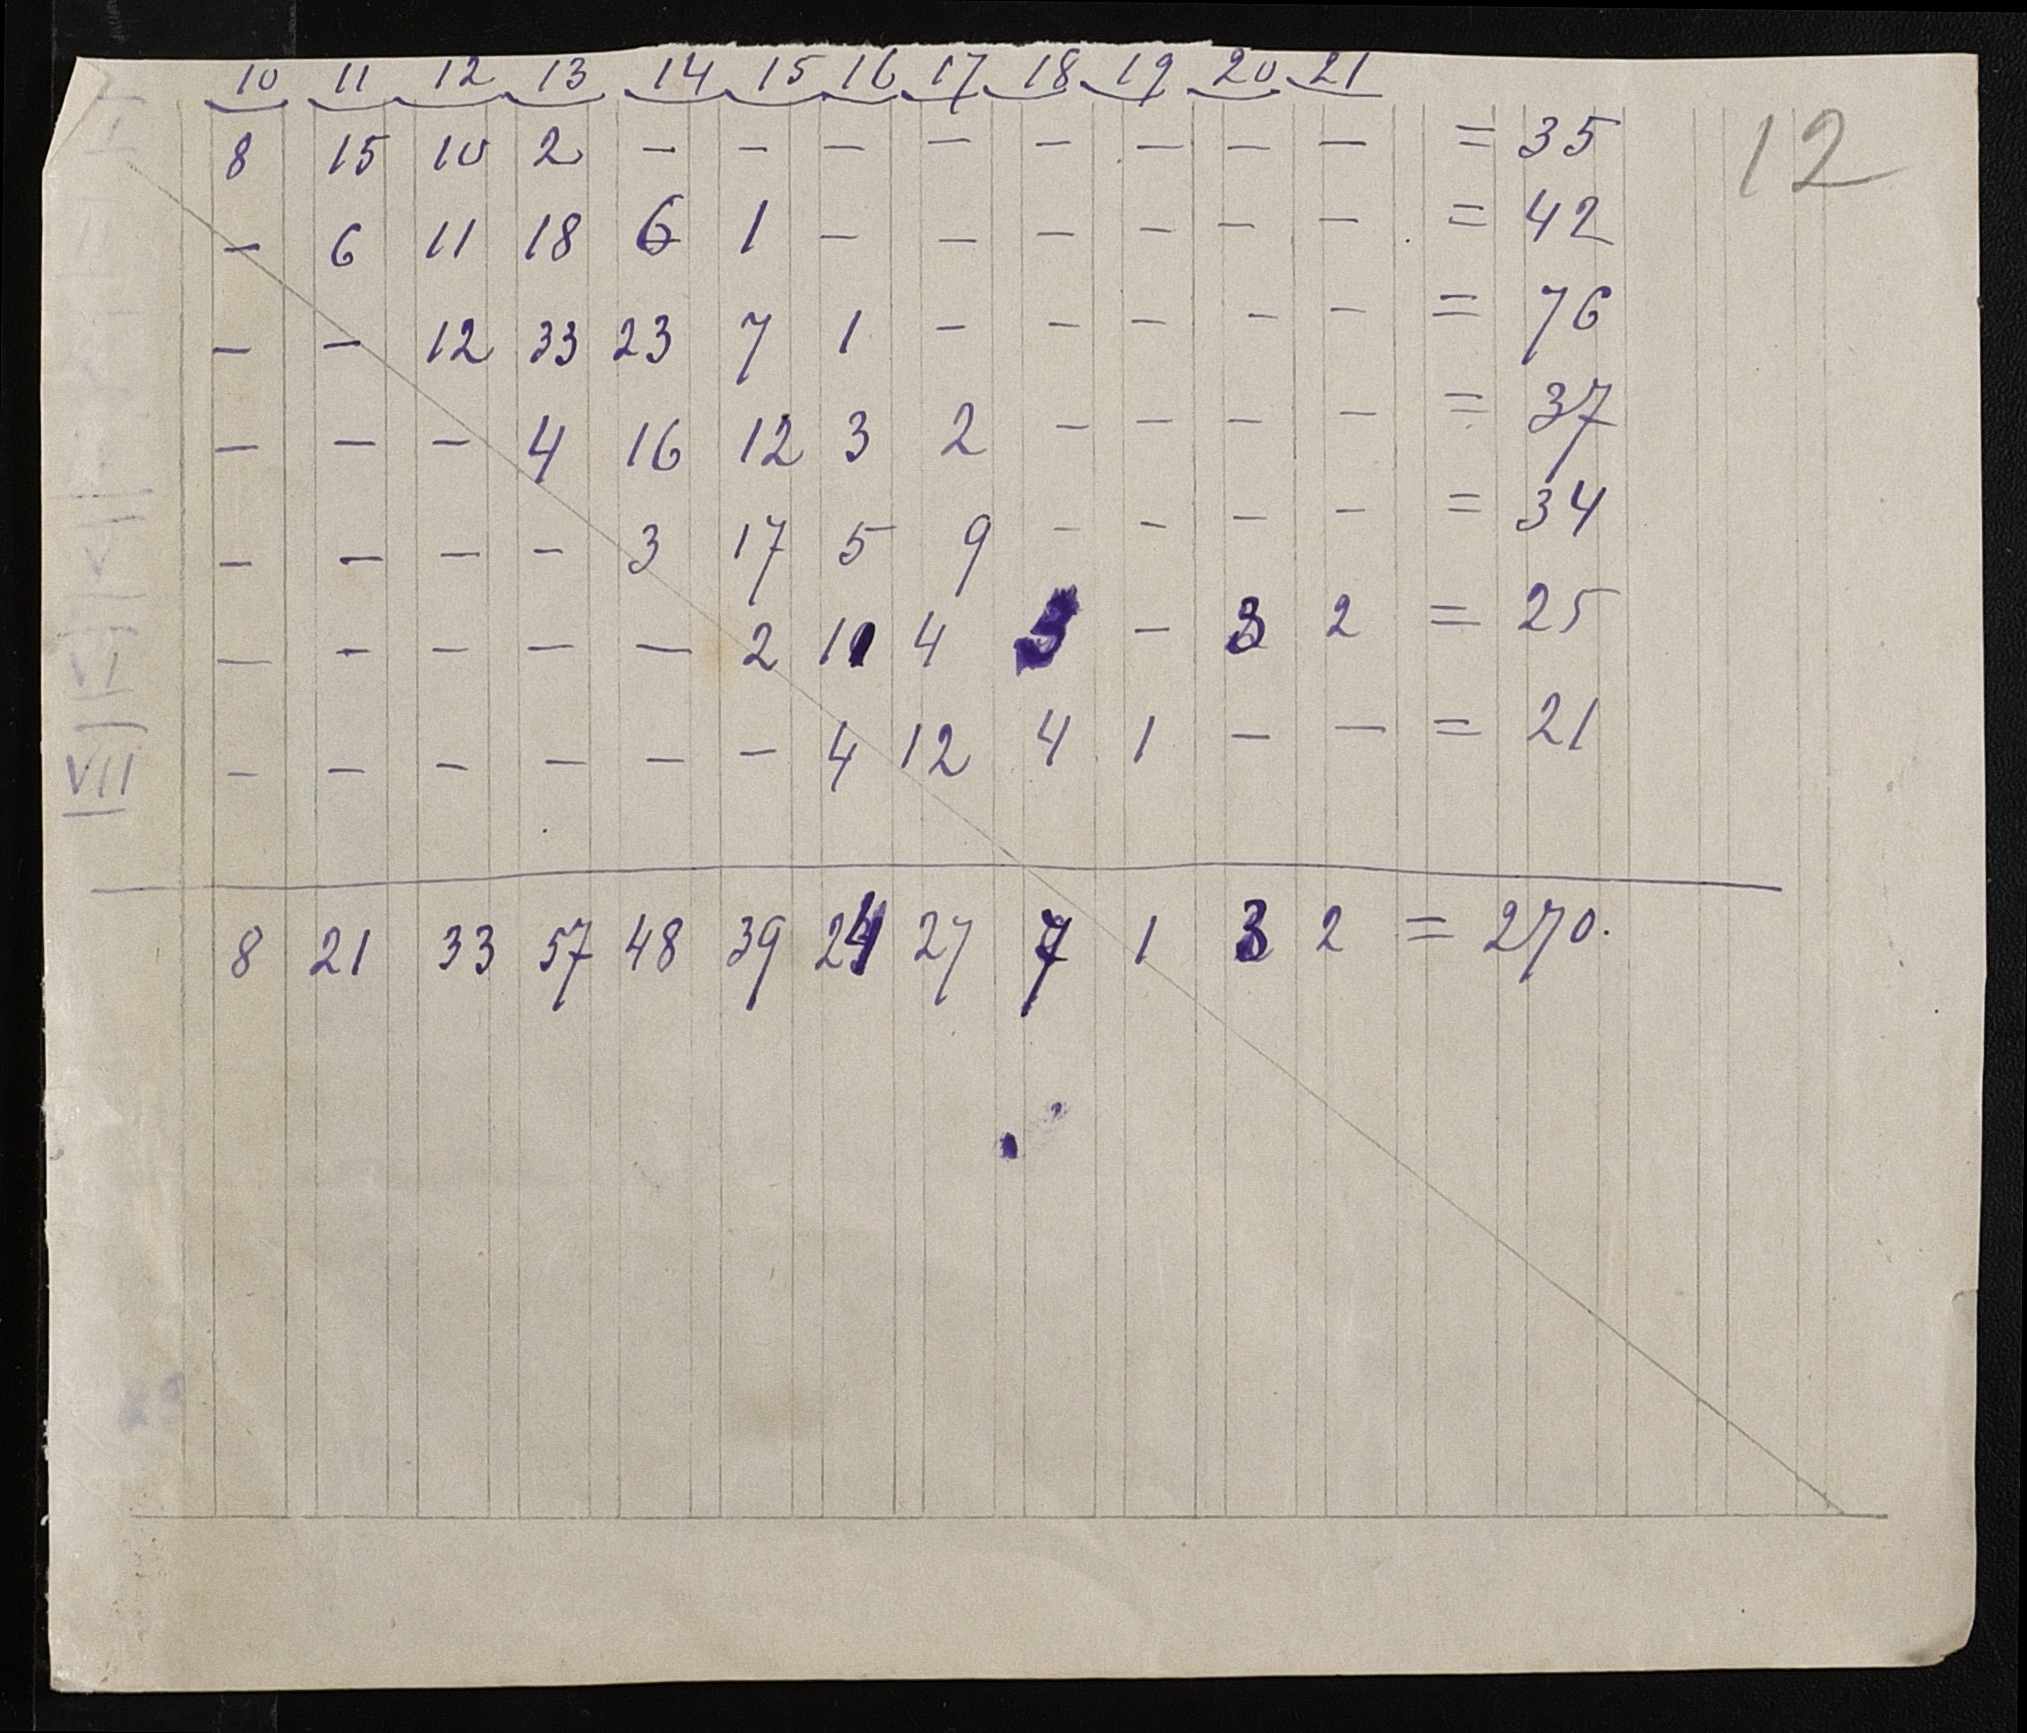 10 11 12 13 14 15 16 17 18 19 20 21
I 8 15 10 2 – – – – – – – – = 35
12
– 6 11 18 6 1 – – – – – – = 42
– – 12 33 23 7 1 – – – – – = 76
– – – 4 16 12 3 2 – – – – = 37
V – – – – 3 17 5 9 – – – – = 34
VI – – – – – 2 11 4 3 – 3 2 = 25
VII – – – – – – 4 12 4 1 – – = 21
8 21 33 57 48 39 24 27 7 1 3 2 = 270.